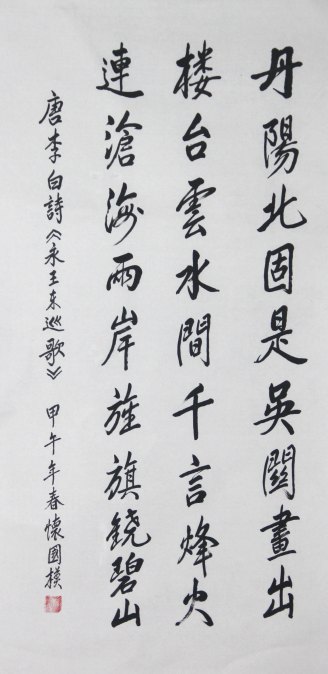 丹陽北固是吳關畫出
楼台雲水間千言烽火
連滄海兩岸旌旗鐃碧山
唐李白詩《永王東巡歌》 甲午年春懷國樸